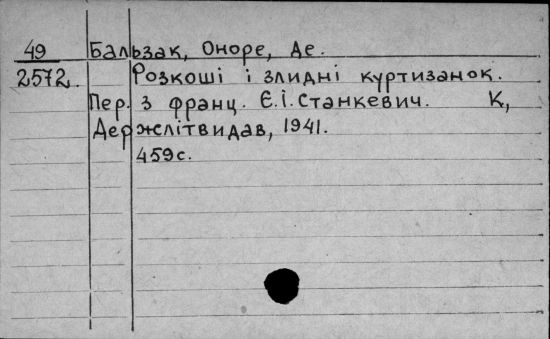 49 Бальзак, Оноре, де.
2572. Розкоші і злидні куртизанок.
Пер. з франц. Є.І. Станкевич. К,
Держлітвидав, 1941.
459с.